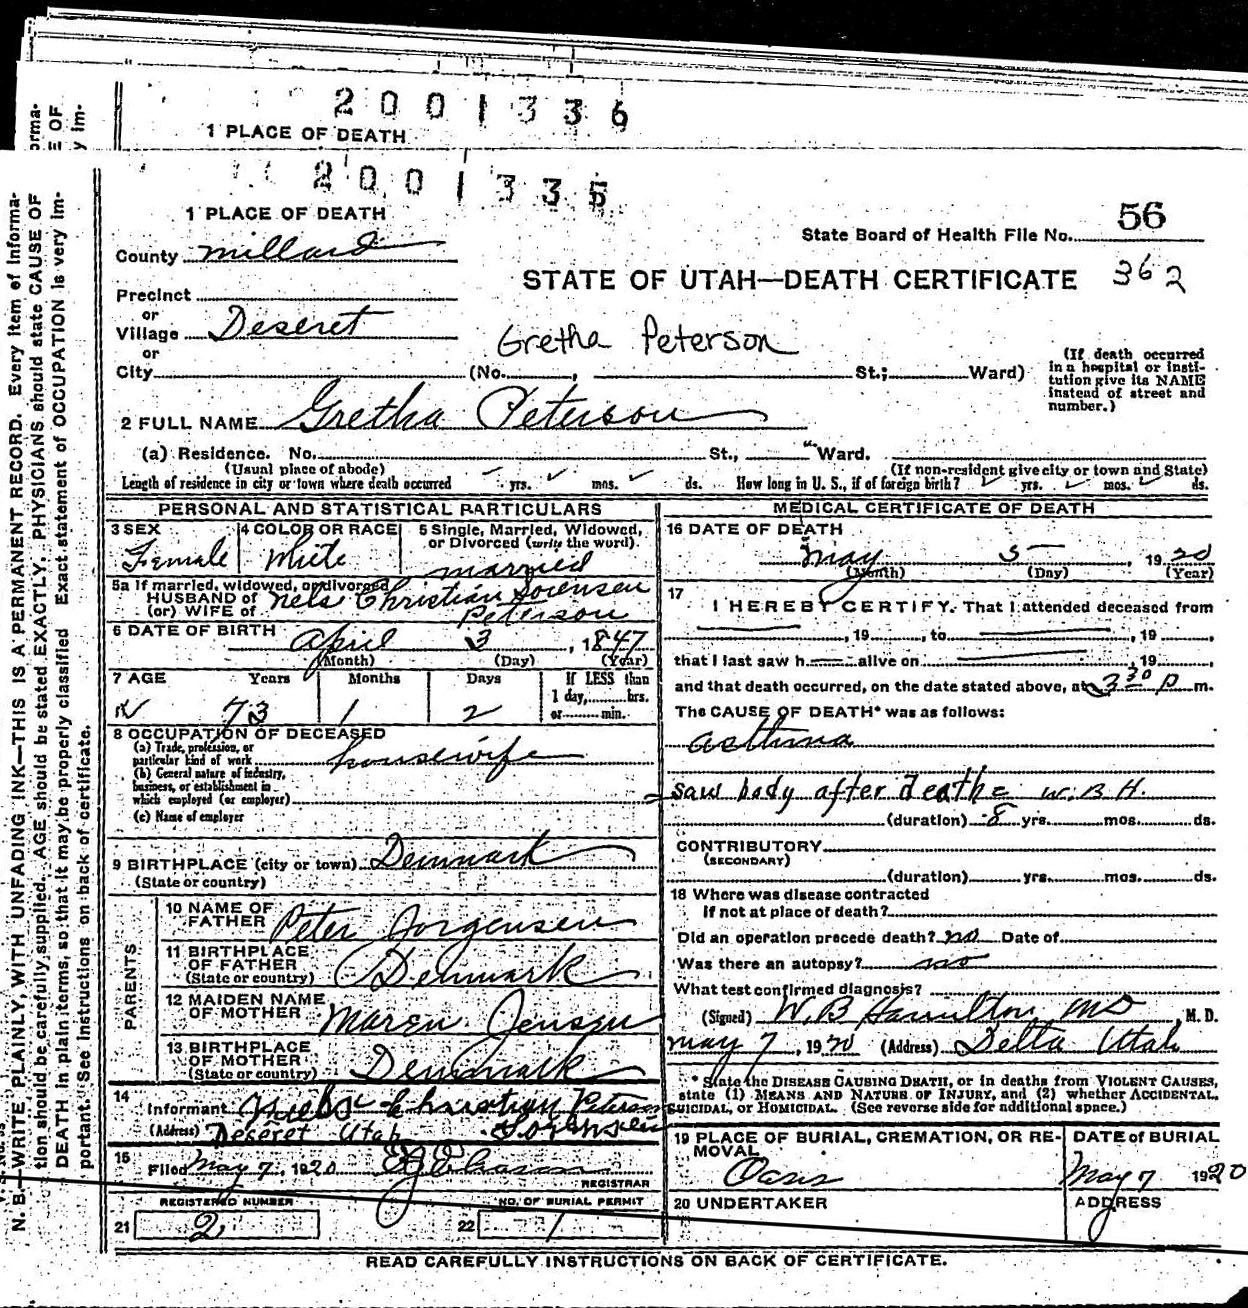 2001336
1 PLACE OF DEATH
2001335
1 PLACE OF DEATH
County Millard
State Board of Health File No. 56
STATE OF UTAH—DEATH CERTIFICATE 362
Precinct
or
Village Deseret
or
Gretha Peterson
City (No. , St.; Ward)
(If death occurred
in a hospital or insti-
tution give its NAME
instead of street and
number.)
2 FULL NAME Gretha Peterson
(a) Residence. No. St., Ward.
(Usual place of abode) (If non-resident give city or town and State)
Length of residence in city or town where death occurred yrs. mos. ds. How long in U. S., if of foreign birth? yrs. mos. ds.
PERSONAL AND STATISTICAL PARTICULARS
3 SEX
Female
4 COLOR OR RACE
White
5 Single, Married, Widowed,
or Divorced (write the word)
married
5a If married, widowed, or divorced
HUSBAND of
(or) WIFE of
Nels Christian Sorensen
Peterson
6 DATE OF BIRTH April 3, 1847
(Month) (Day) (Year)
7 AGE Years Months Days
73 1 2
If LESS than
1 day, hrs.
or min.
8 OCCUPATION OF DECEASED
(a) Trade, profession, or
particular kind of work housewife
(b) General nature of industry,
business, or establishment in
which employed (or employer)
(c) Name of employer
9 BIRTHPLACE (city or town) Denmark
(State or country)
PARENTS
10 NAME OF
FATHER Peter Jorgensen
11 BIRTHPLACE
OF FATHER
(State or country) Denmark
12 MAIDEN NAME
OF MOTHER Maren Jensen
13 BIRTHPLACE
OF MOTHER
(State or country) Denmark
14
Informant Niels Christian Peterson
Sorensen
(Address) Deseret Utah
15
Filed May 7, 1920
REGISTRAR
REGISTERED NUMBER NO. OF BURIAL PERMIT
21 2 22 1
MEDICAL CERTIFICATE OF DEATH
16 DATE OF DEATH
May 5 1920
(Month) (Day) (Year)
17
I HEREBY CERTIFY. That I attended deceased from
, 19 , to , 19 ,
that I last saw h alive on , 19 ,
and that death occurred, on the date stated above, at 3 30 P m.
The CAUSE OF DEATH* was as follows:
asthma
saw body after death W.B.H.
(duration) 8 yrs. mos. ds.
CONTRIBUTORY
(SECONDARY)
(duration) yrs. mos. ds.
18 Where was disease contracted
If not at place of death?
Did an operation precede death? no Date of
Was there an autopsy? no
What test confirmed diagnosis?
(Signed) W. B Hamilton MD, M. D.
May 7, 1920 (Address) Delta Utah
* State the DISEASE CAUSING DEATH, or in deaths from VIOLENT CAUSES,
state (1) MEANS AND NATURE OF INJURY, and (2) whether ACCIDENTAL,
SUICIDAL, or HOMICIDAL. (See reverse side for additional space.)
19 PLACE OF BURIAL, CREMATION, OR RE-
MOVAL
Oasis
DATE of BURIAL
May 7 1920
20 UNDERTAKER
ADDRESS
READ CAREFULLY INSTRUCTIONS ON BACK OF CERTIFICATE.
N. B.—WRITE PLAINLY, WITH UNFADING INK—THIS IS A PERMANENT RECORD. Every item of informa-
tion should be carefully supplied. AGE should be stated EXACTLY. PHYSICIANS should state CAUSE OF
DEATH in plain terms, so that it may be properly classified. Exact statement of OCCUPATION is very im-
portant. See instructions on back of certificate.
orma-
E OF
y im-